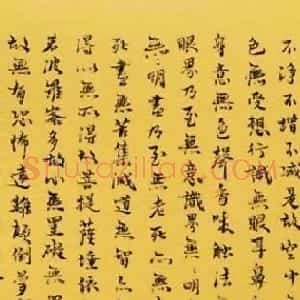 不淨不增不減是故空中
色無受想行識無眼耳鼻
身意無色聲香味觸法
眼界乃至無意識界無
無明盡乃至無老死亦無
死盡無苦集滅道無智亦
得以無所得故菩提薩埵依
若波羅蜜多故心無罣礙無
故無有恐怖遠離顛倒夢